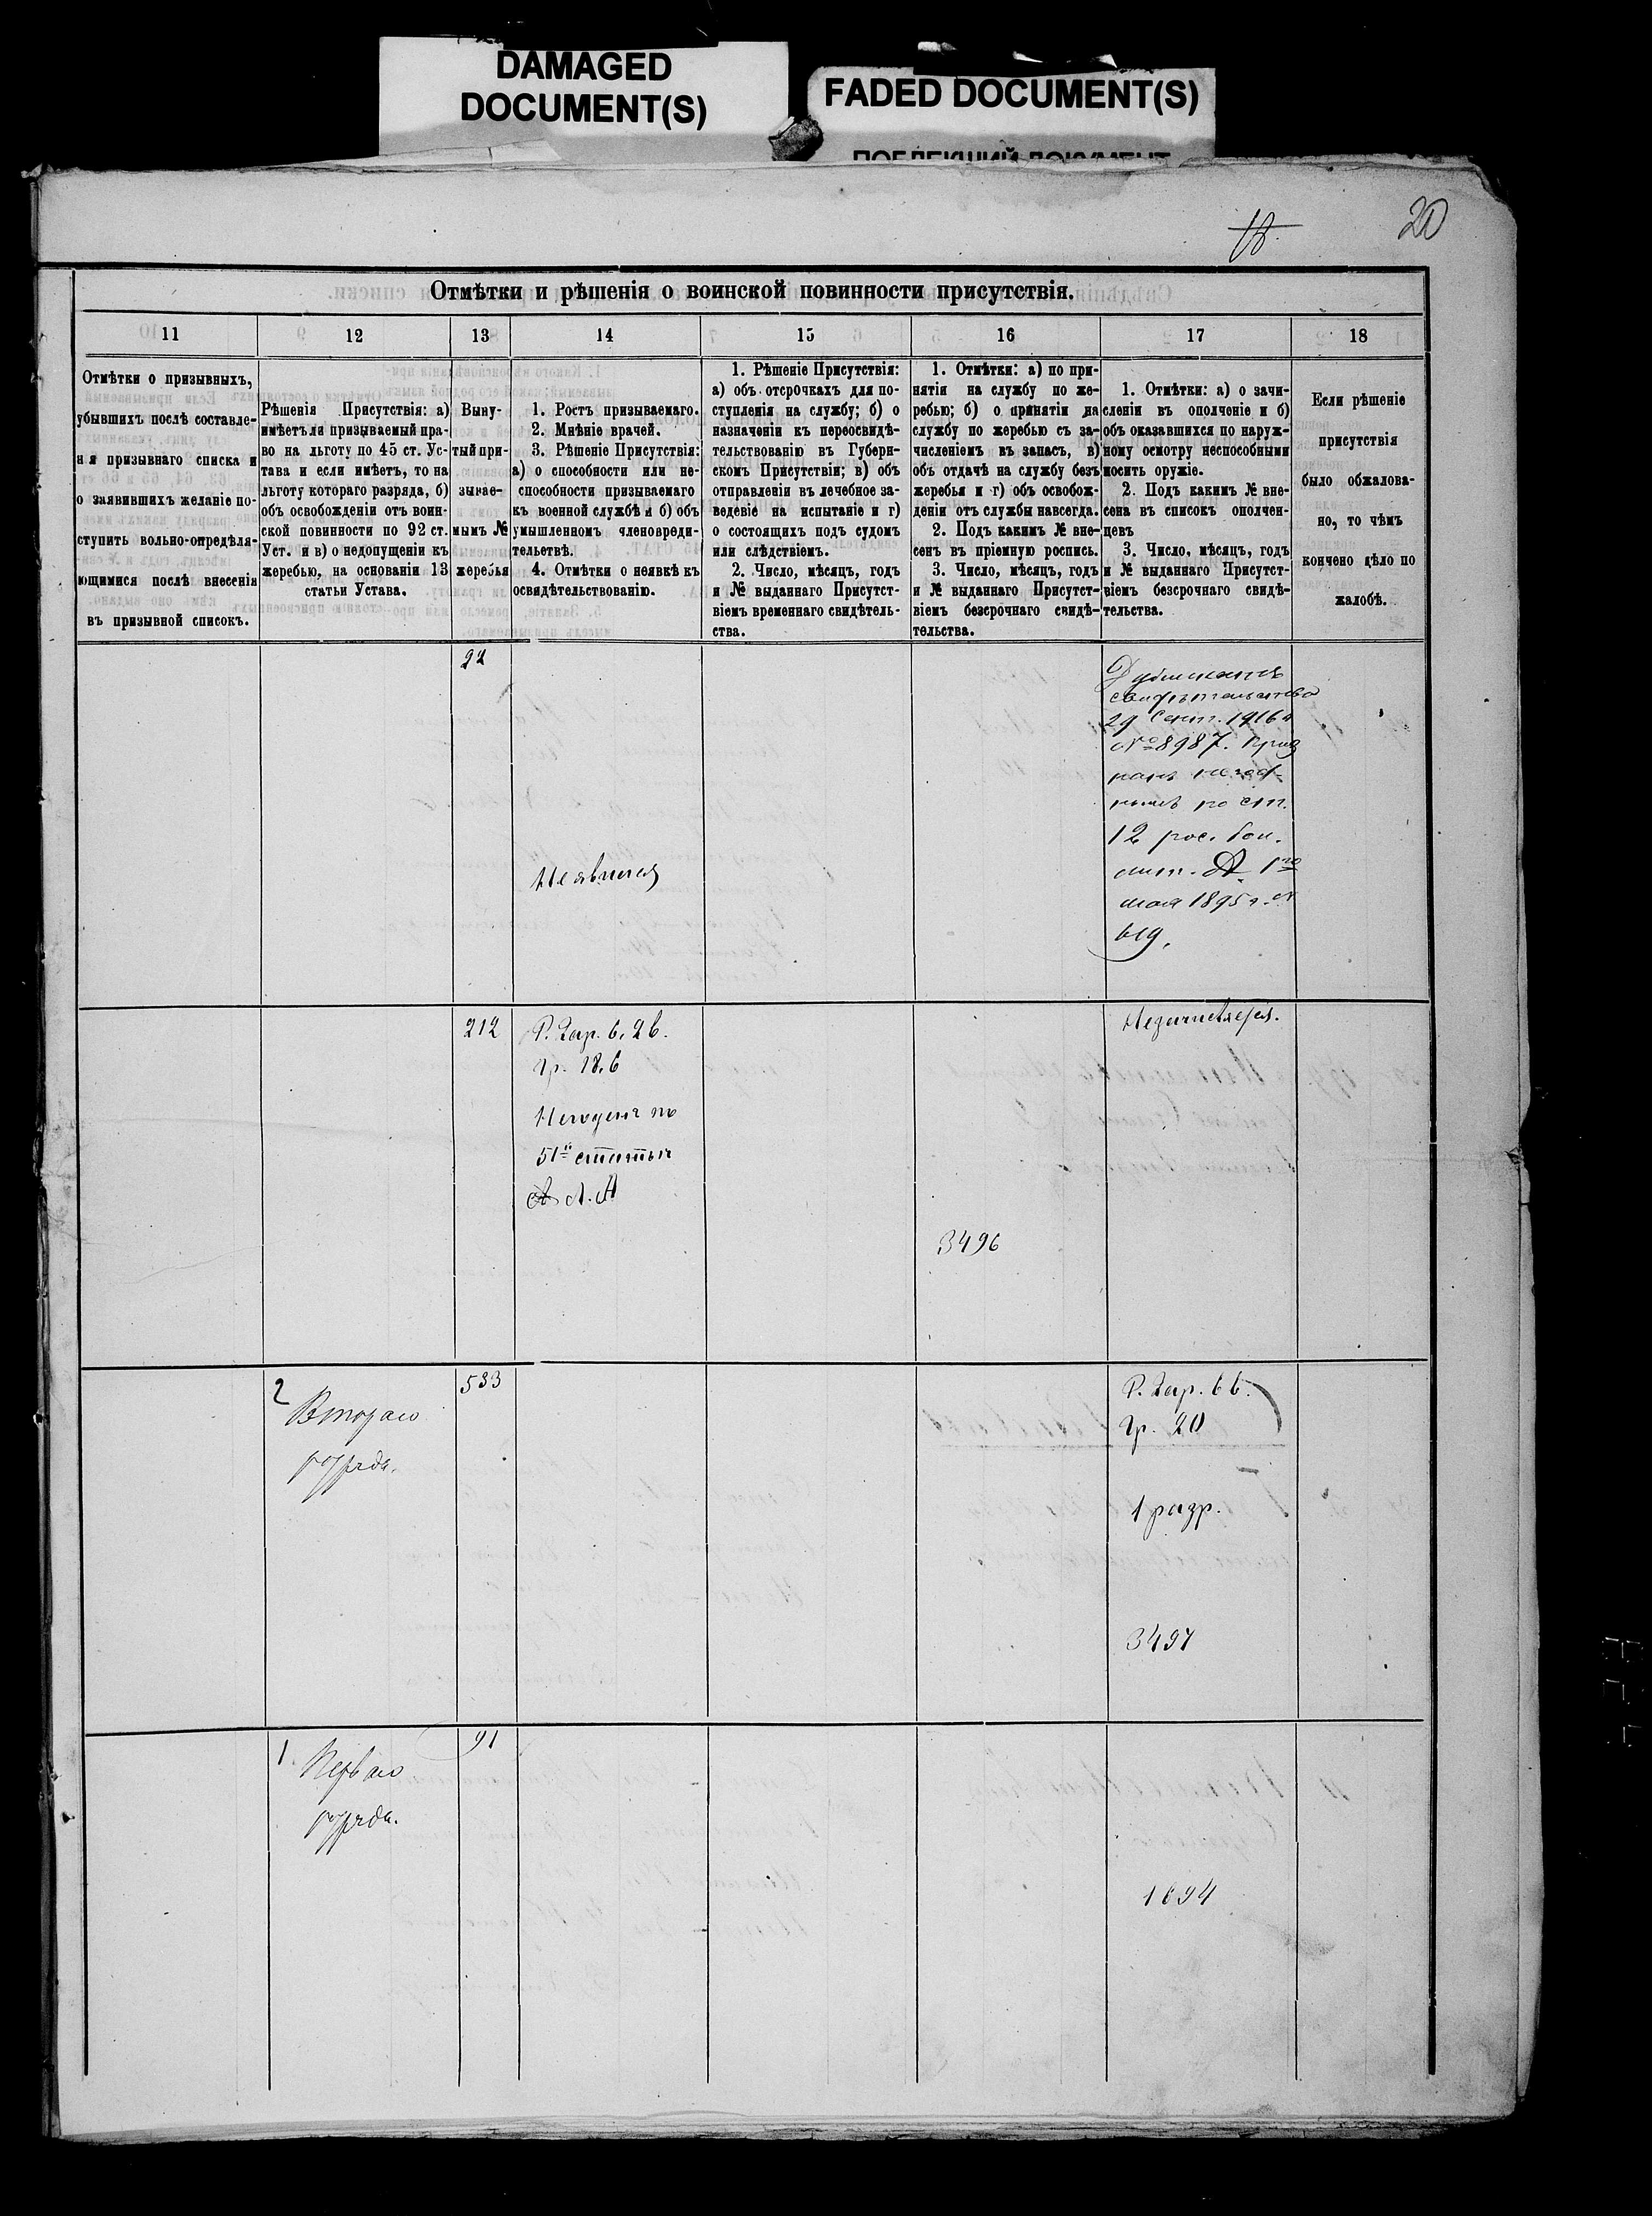 DAMAGED
DOCUMENT(S)
FADED DOCUMENT(S)
18.
20
Отмѣтки и рѣшенія о воинской повинности присутствія.
11
12
13
14
15
16
17
18
Отмѣтки о призывныхъ,
убывшихъ послѣ составле-
нія призывнаго списка и
о заявившихъ желаніе по-
ступить вольно-опредѣля-
ющимися послѣ внесенія
въ призывной списокъ.
Рѣшенія Присутствія: а)
имѣетъ ли призываемый пра-
во на льготу по 45 ст. Ус-
тава и если имѣетъ, то на
льготу котораго разряда, б)
объ освобожденіи отъ воин-
ской повинности по 92 ст.
Уст. и в) о недопущеніи къ
жеребью, на основаніи 13
статьи Устава.
Выну-
тый при-
зывае-
мымъ №
жеребья
1. Ростъ призываемаго.
2. Мнѣніе врачей.
3. Рѣшеніе Присутствія:
а) о способности или не-
способности призываемаго
къ военной службѣ и б) объ
умышленномъ членовреди-
тельствѣ.
4. Отмѣтки о неявкѣ къ
освидѣтельствованію.
1. Рѣшеніе Присутствія:
а) объ отсрочкахъ для по-
ступленія на службу; б) о
назначеніи къ переосвидѣ-
тельствованію въ Губерн-
скомъ Присутствіи; в) объ
отправленіи въ лечебное за-
веденіе на испытаніе и г)
о состоящихъ подъ судомъ
или слѣдствіемъ.
2. Число, мѣсяцъ, годъ
и № выданнаго Присутст-
віемъ временнаго свидѣтель-
ства.
1. Отмѣтки: а) по при-
нятіи на службу по же-
ребью; б) о принятіи на
службу по жеребью съ за-
численіемъ въ запасъ, в)
объ отдачѣ на службу безъ
жеребья и г) объ освобож-
деніи отъ службы навсегда.
2. Подъ какимъ № вне-
сенъ въ пріемную роспись.
3. Число, мѣсяцъ, годъ
и № выданнаго Присутст-
віемъ безсрочнаго свидѣ-
тельства.
1. Отмѣтки: а) о зачи-
сленіи въ ополченіе и б)
объ оказавшихся по наруж-
ному осмотру неспособными
носить оружіе.
2. Подъ какимъ № вне-
сена въ списокъ ополчен-
цевъ
3. Число, мѣсяцъ, годъ
и № выданнаго Присутст-
віемъ безсрочнаго свидѣ-
тельства.
Если рѣшеніе
присутствія
было обжалова-
но, то чѣмъ
кончено дѣло по
жалобѣ.
22
Неявился
Дубликатъ
свидѣтельства
29 Сент. 1916 г
№ 8987. Приз
нанъ негод-
нымъ по ст.
12 рос. бол.
лит. А 1го
мая 1895 г.
212
Р. 2 ар. 6. 2 в.
Гр. 18. 6
Негоденъ по
51й статьи
Л. А
3496
Незачисляется.
2
Втораго
разряда.
533
Р. 2 ар. 6 в.
Гр. 20
1 разр.
3497
1
Перваго
разряда.
91
1694